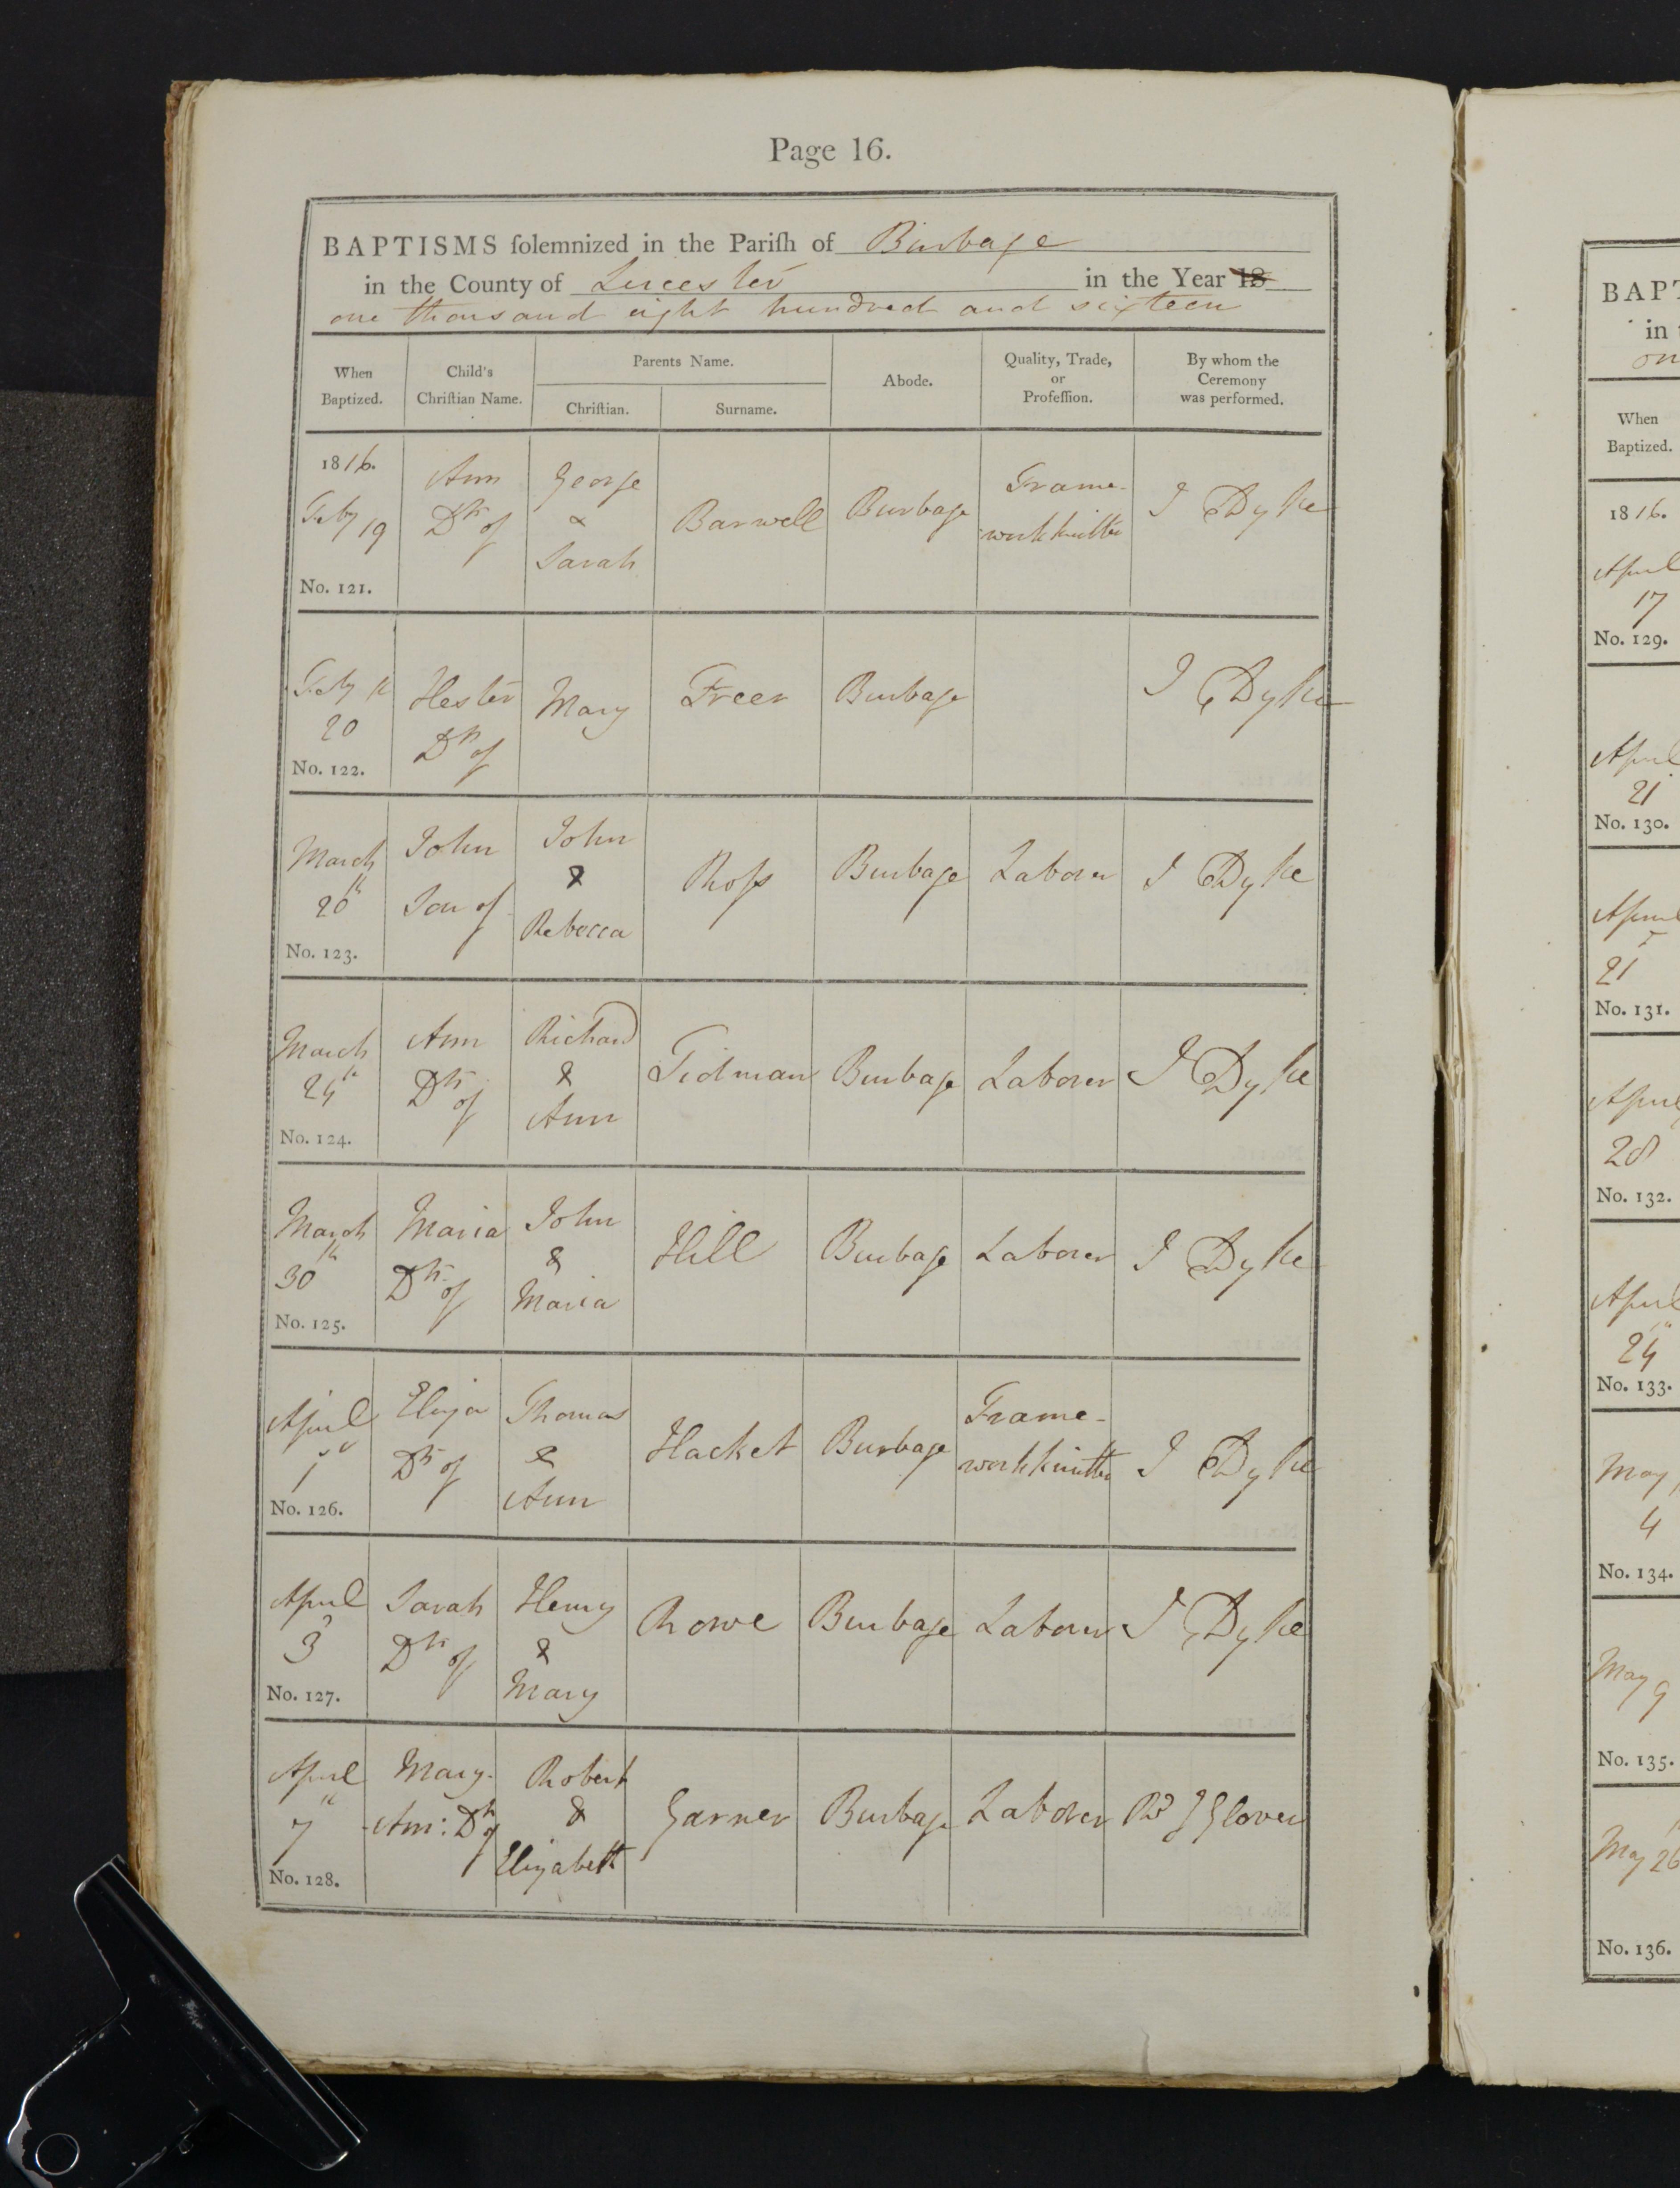 Page 16.
BAPTISMS ſolemnized in the Pariſh of Burbage
in the County of Leicester in the Year 18
one thousand eight hundred and sixteen
When Baptized.
Child's Chriſtian Name.
Parents Name.
Chriſtian.
Surname.
Abode.
Quality, Trade, or Profeſſion.
By whom the Ceremony was performed.
1816.
Feby 19
No. 121.
Ann
Dtr of
George
&
Sarah
Barwell
Burbage
Frame-
workknitter
J Dyke
Feby th
20
No. 122.
Hester
Dtr of
Mary
Freer
Burbage
J Dyke
March
20th
No. 123.
John
Son of
John
&
Rebecca
Roſs
Burbage
Laborer
J Dyke
March
24th
No. 124.
Ann
Dtr of
Richard
&
Ann
Tidman
Burbage
Laborer
J Dyke
March
30th
No. 125.
Maria
Dtr of
John
&
Maria
Hill
Burbage
Laborer
J Dyke
April
1st
No. 126.
Eliza
Dtr of
Thomas
&
Ann
Hacket
Burbage
Frame-
workknitter
J Dyke
April
3
No. 127.
Sarah
Dtr of
Henry
&
Mary
Rowe
Burbage
Laborer
J Dyke
April
7th
No. 128.
Mary
Ann: Dtr of
Robert
&
Elizabeth
Garner
Burbage
Laborer
Rd J Glover
BAPT
in
on
When
Baptized.
1816.
April
17
No. 129.
April
21
No. 130.
April
21
No. 131.
April
28
No. 132.
April
24
No. 133.
May
4
No. 134.
May 9
No. 135.
May 26
No. 136.